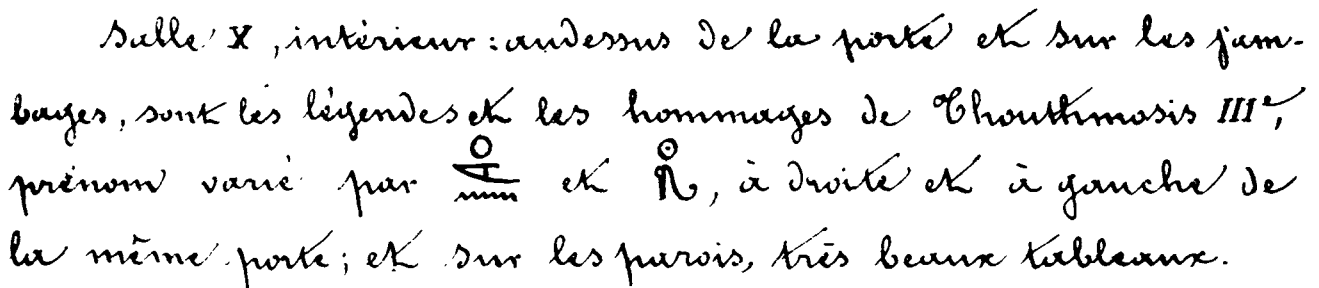 Salle X, intérieur: audessus de la porte et sur les jam-
bages, sont les légendes et les hommages de Thouthmosis III^e,
prénom varié par et , à droite et à gauche de
la même porte; et sur les parois, très beaux tableaux.